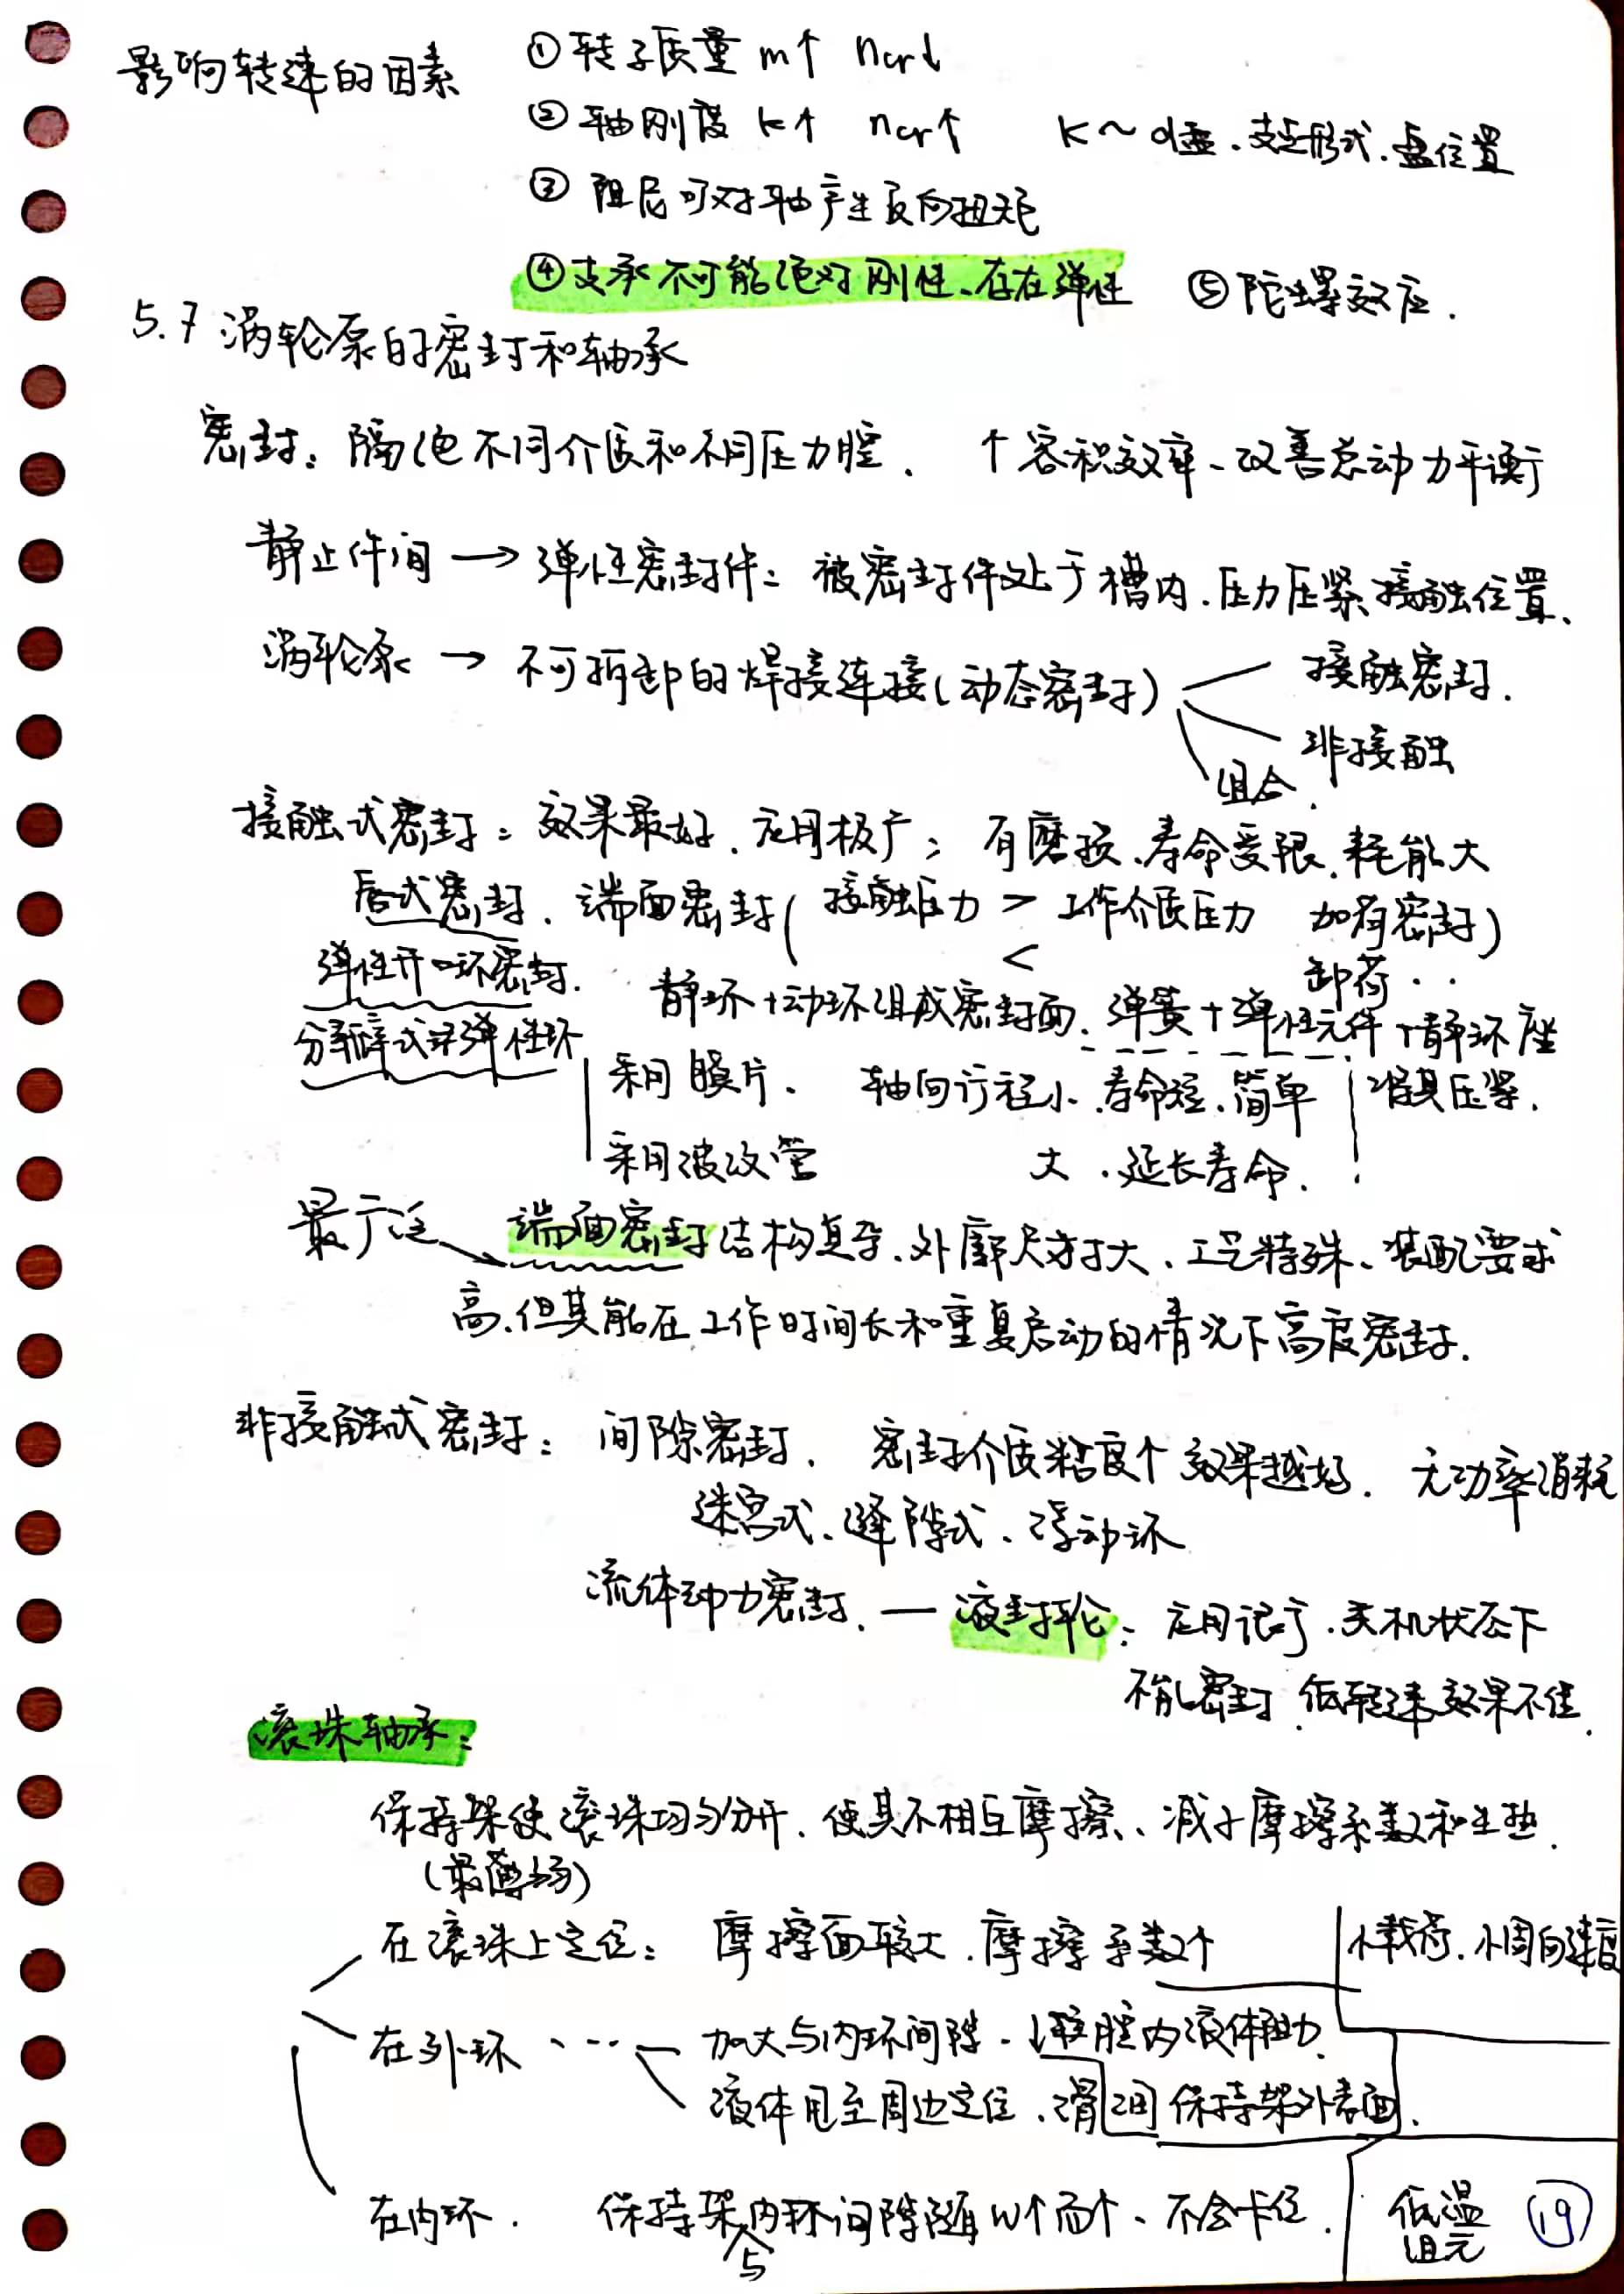 影响转速的因素 ①转子质量 m↑ ncr↓
②轴刚度 k↑ ncr↑ K~d盘、支点形式、盘位置
③阻尼可对轴产生反向扭矩
④支承不可能绝对刚性、存在弹性 ⑤陀螺效应.
5.7 涡轮泵的密封和轴承
密封:隔绝不同介质和不同压力腔. ↑容积效率、改善总动力平衡
静止件间 → 弹性密封件:被密封件处于槽内、压力压紧接触位置、
涡轮泵 → 不可拆卸的焊接连接(动态密封) 接触密封.
非接触
组合.
接触式密封:效果最好、应用极广;有磨损、寿命受限、耗能大
唇式密封、端面密封(接触压力 > 工作介质压力 加荷密封)
< 卸荷 ‥
弹性开口环密封.
静环+动环组成密封面、弹簧+弹性元件+静环座
分瓣式非弹性环
采用膜片、 轴向行程小、寿命短、简单 压紧.
采用波纹管 大、延长寿命.
最广泛 端面密封结构复杂、外廓尺寸大、工艺特殊、装配要求
高、但其能在工作时间长和重复启动的情况下高度密封.
非接触式密封:间隙密封. 密封介质粘度↑效果越好. 无功率消耗
迷宫式、缝隙式、浮动环
流体动力密封. — 液封轮:应用广、关机状态下
不能密封、低转速效果不佳.
滚珠轴承:
保持架使滚珠均匀分开、使其不相互摩擦、减少摩擦系数和生热.
(最薄弱)
在滚珠上定位:摩擦面较大、摩擦系数↑ 小载荷、小周向速度
在外环 ‥‥ 加大与内环间隙、↓腔内液体阻力.
液体甩至周边定位、滑润保持架外表面.
在内环. 保持架与内环间隙随w↑而↑、不会卡住. 低温
组元
19